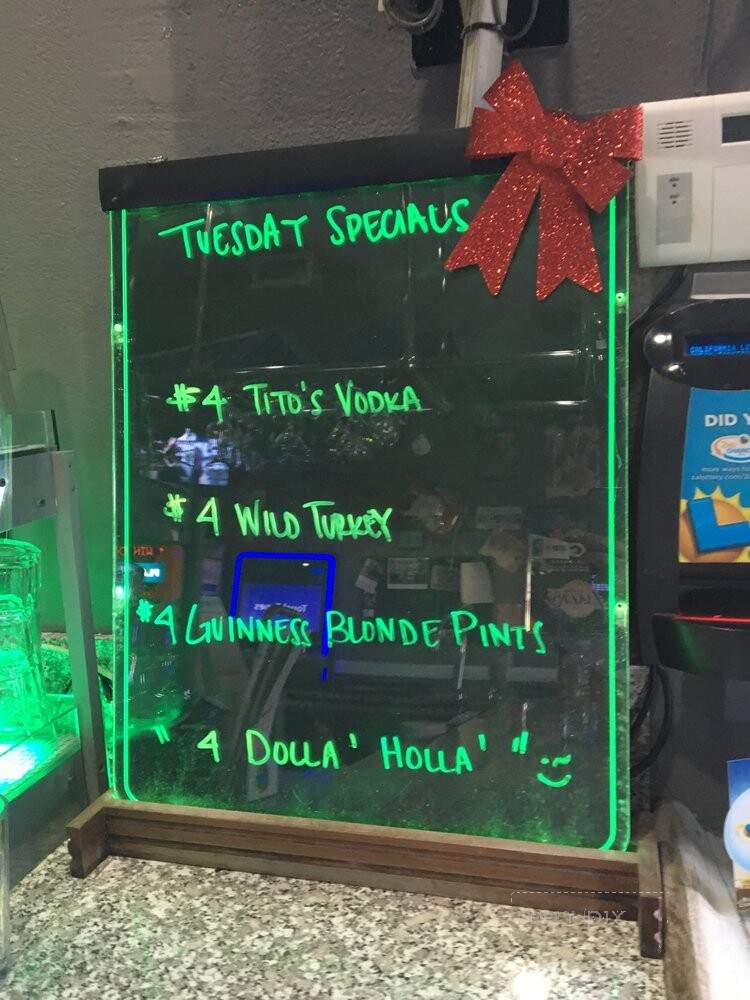 TUESDAY SPECIALS
#4 TITO'S VODKA
#4 WILD TURKEY
#4 GUINNESS BLONDE PINTS
" 4 DOLLA' HOLLA' "
DID
more ways to